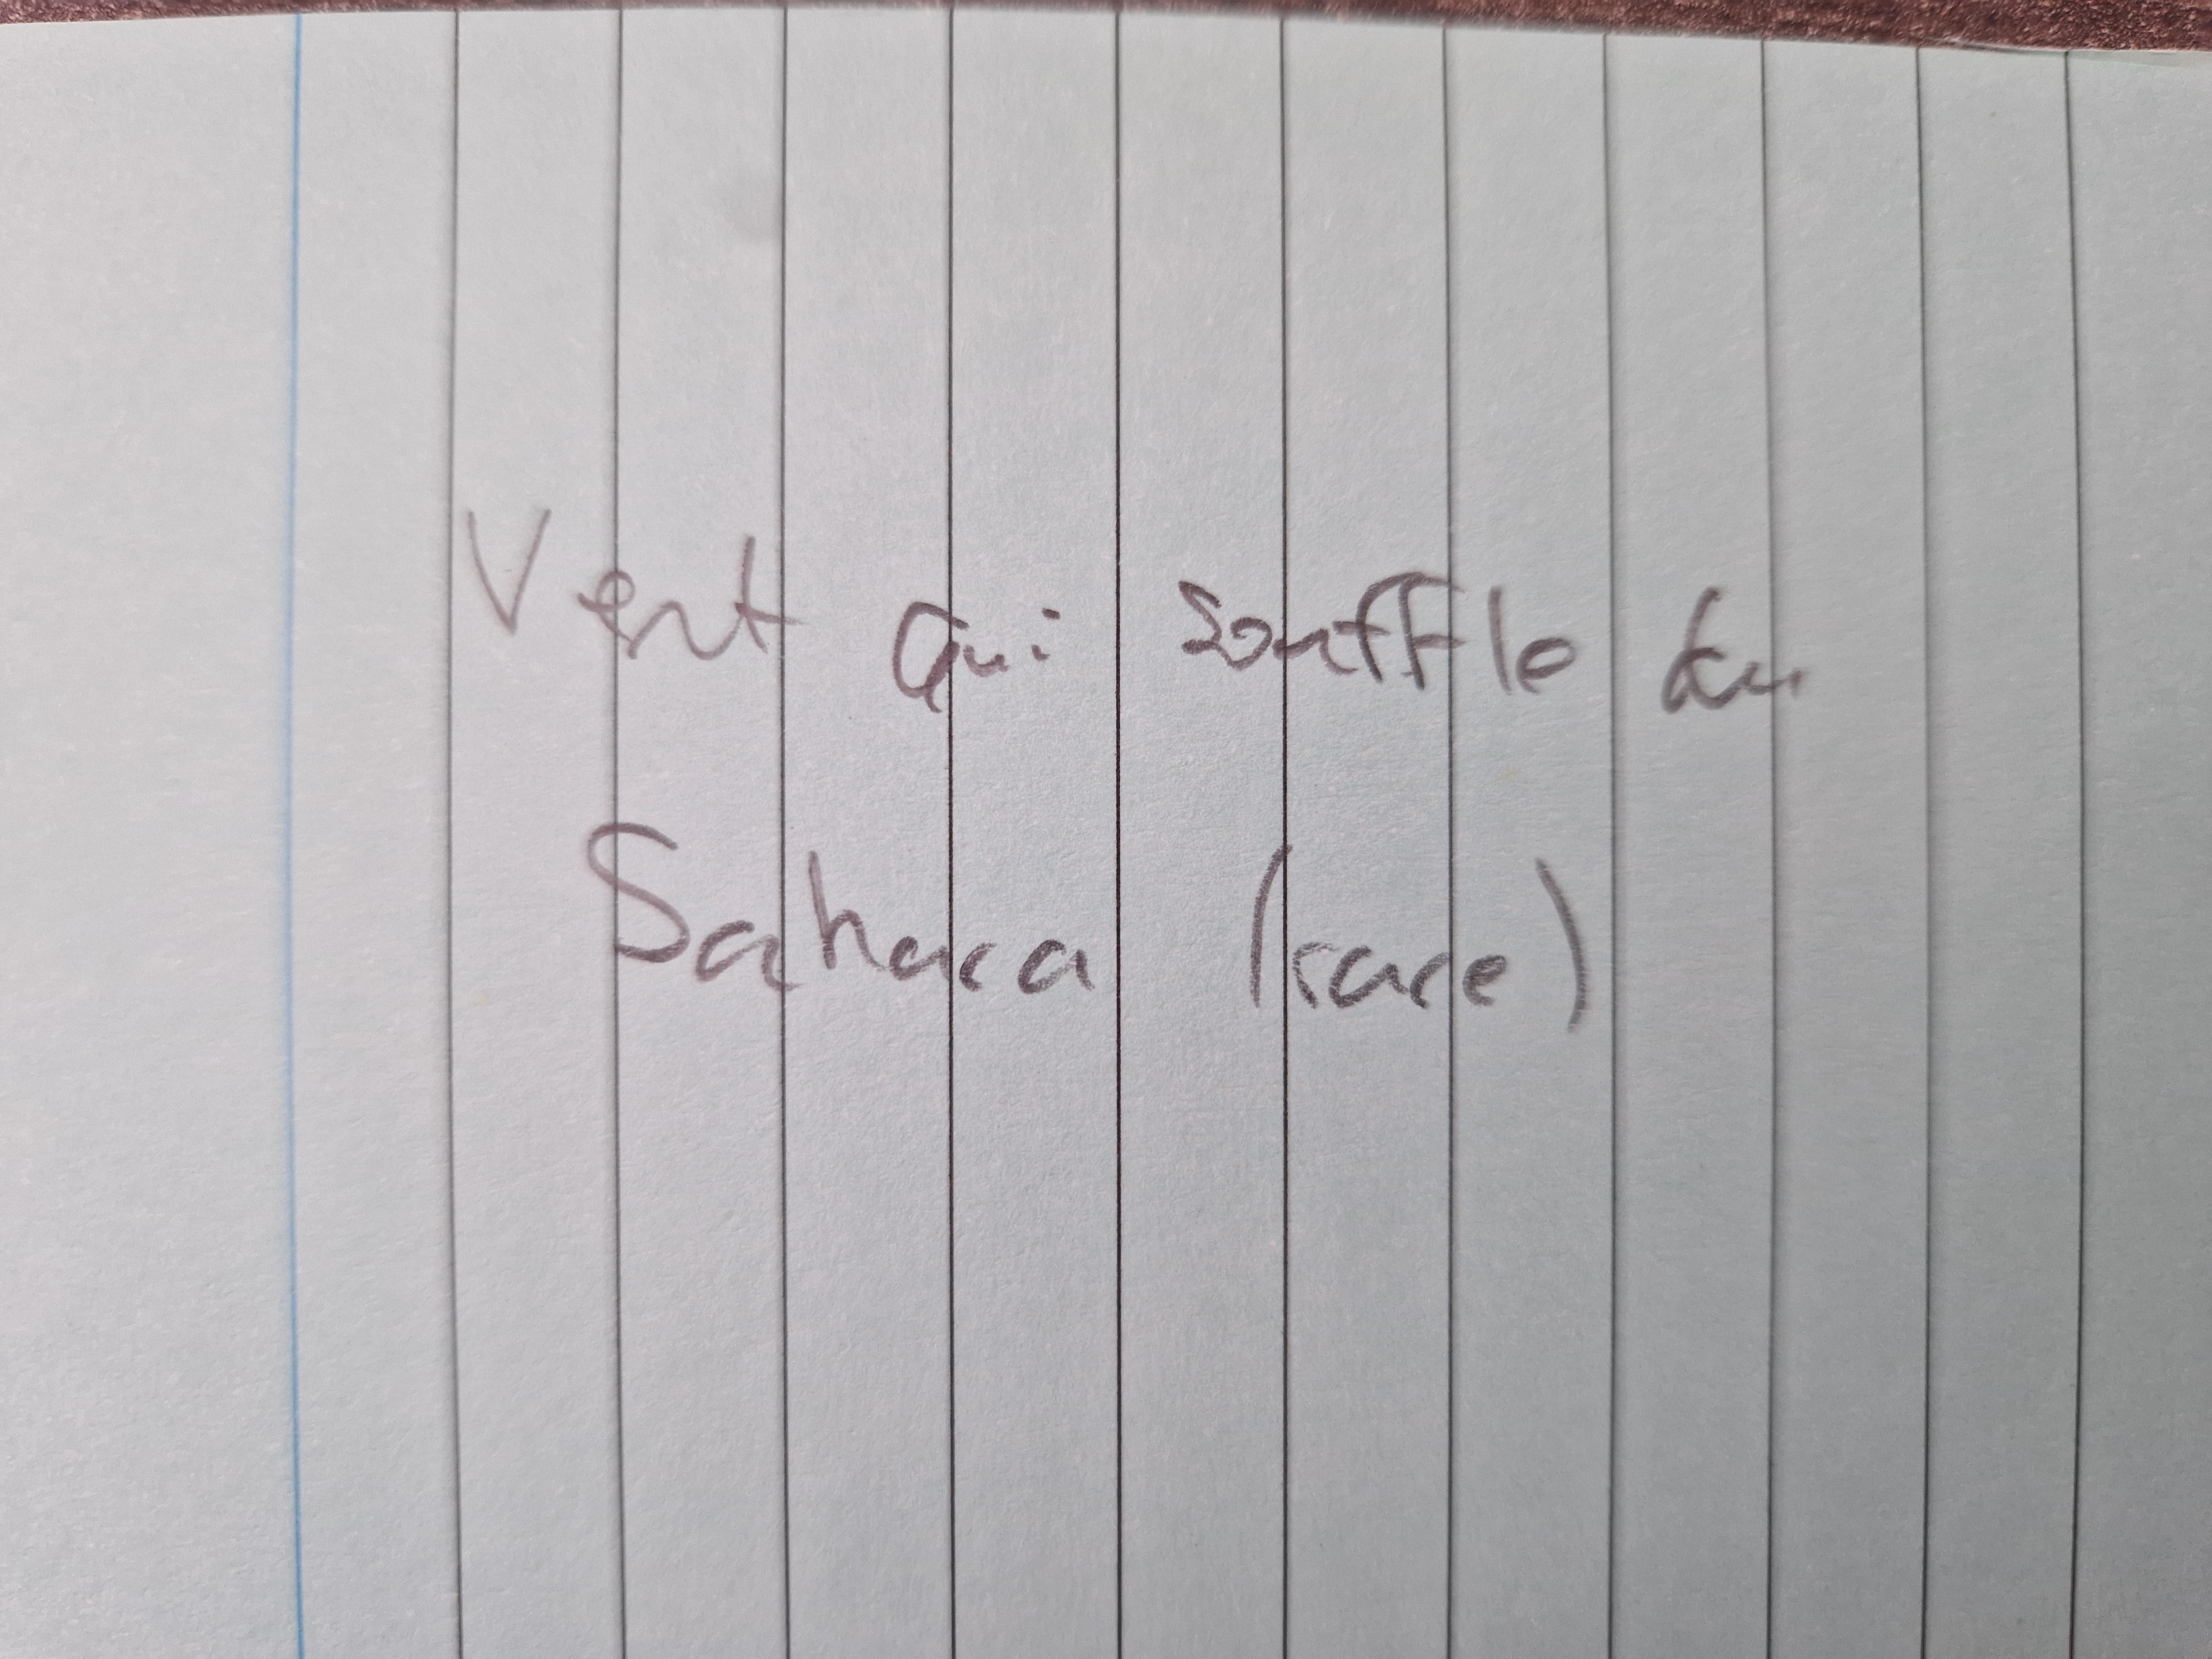 Vent qui souffle du
Sahara (rare)